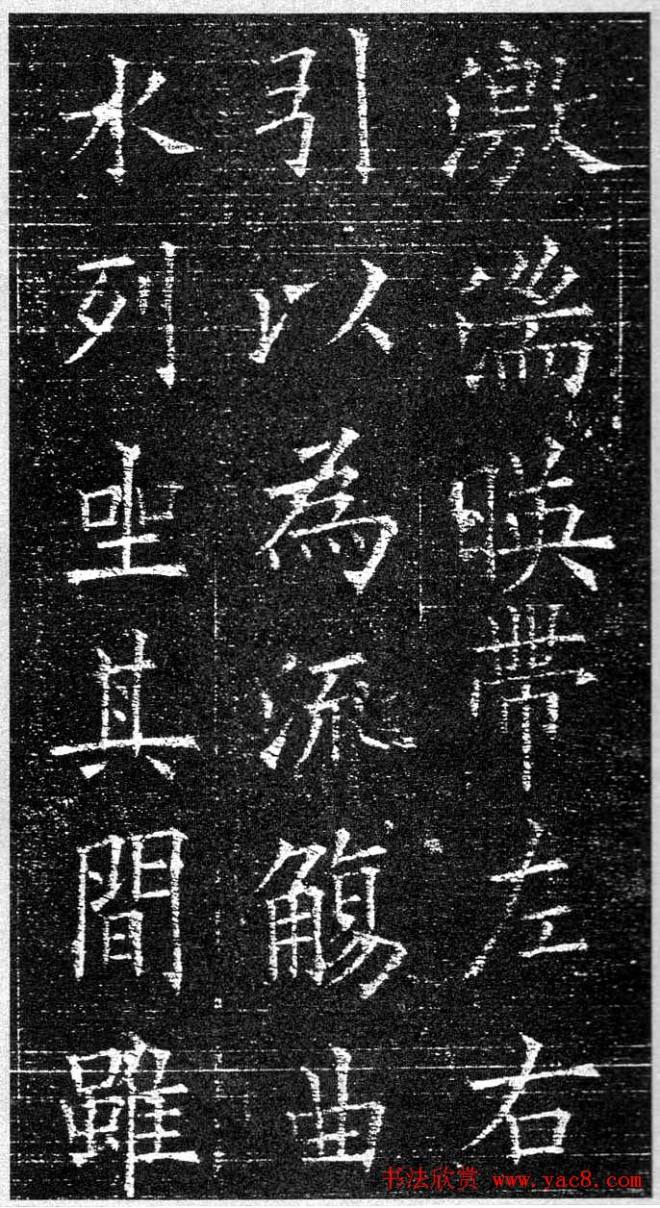 激湍暎帶左右
引以為流觴曲
水列坐其間雖
书法欣赏 www.yac8.com